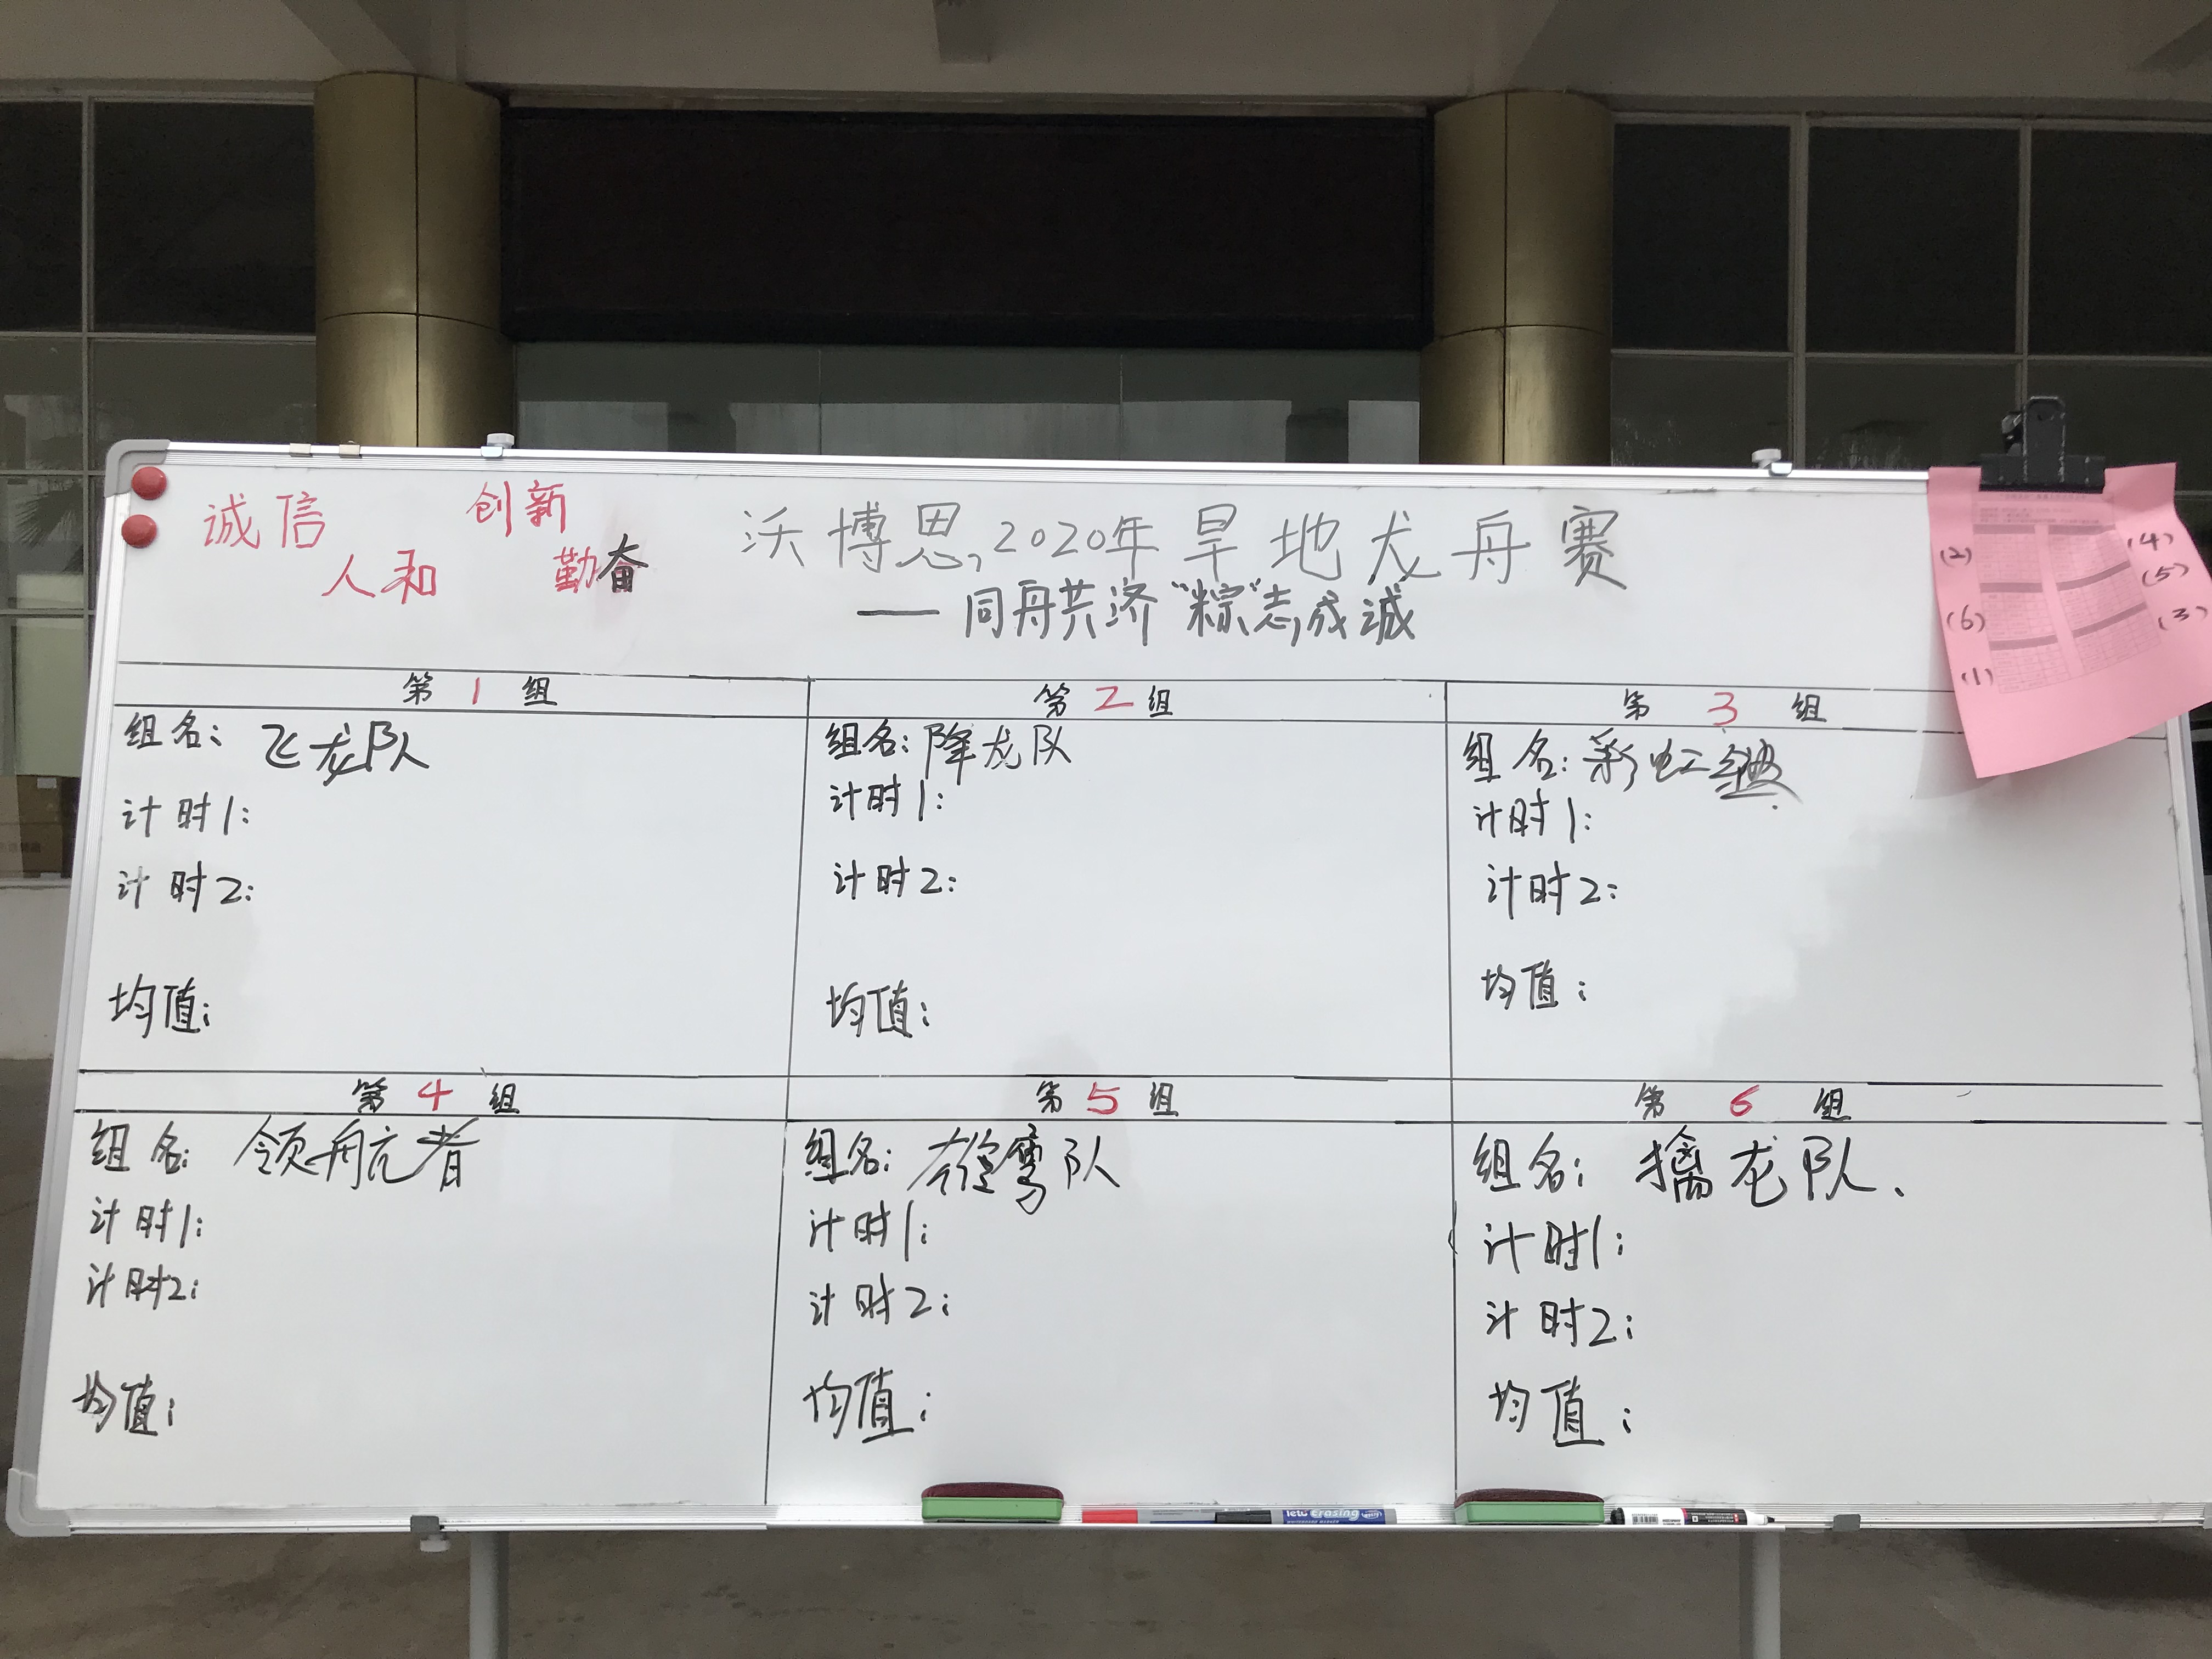 诚信 创新
人和 勤奋
沃博思,2020年旱地龙舟赛
——同舟共济"粽"志成诚
第1组
组名:飞龙队
计时1:
计时2:
均值:
第2组
组名:降龙队
计时1:
计时2:
均值:
第3组
组名:彩虹
计时1:
计时2:
均值:
第4组
组名:领航者
计时1:
计时2:
均值:
第5组
组名:雄鹰队
计时1:
计时2:
均值:
第6组
组名:擒龙队.
计时1:
计时2:
均值:
(2) (4)
(5)
(6) (3)
(1)